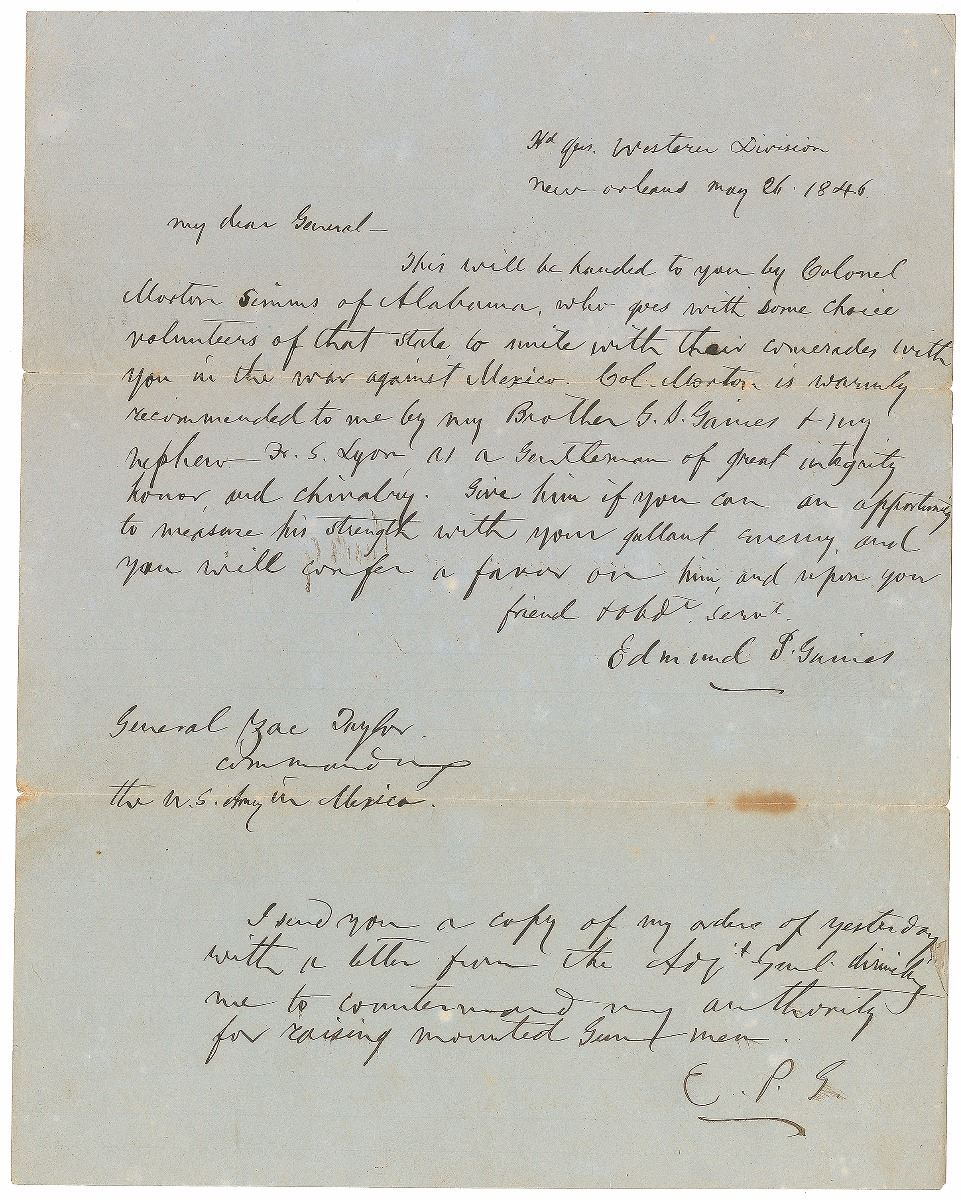 Hd Qrs. Western Division
New Orleans May 26. 1846
My dear General—
This will be handed to you by Colonel
Morton Simms of Alabama, who goes with some choice
volunteers of that state to unite with their comerades with
you in the war against Mexico. Col. Morton is warmly
recommended to me by my Brother G. S. Gaines & my
nephew Fr. S. Lyon, as a Gentleman of great integrity
honor and chivalry. Give him if you can an opportunity
to measure his strength with your gallant enemy, and
you will confer a favor on him, and upon your
friend & obdt. servt.
Edmund P. Gaines
General Zac Taylor
commanding
the U.S. Army in Mexico.
I send you a copy of my orders of yesterday
with a letter from the Adjt Genl. directing
me to countermand my authority
for raising mounted Gun men.
E. P. G